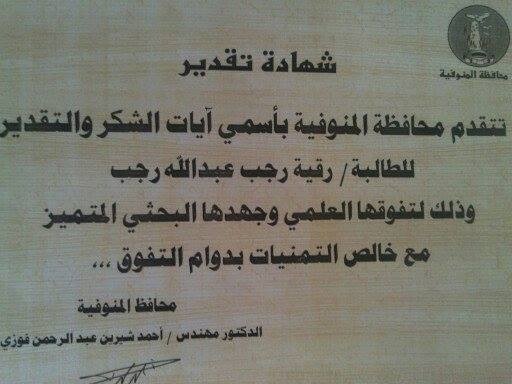 محافظة المنوفية
شهادة تقدير
تتقدم محافظة المنوفية بأسمي آيات الشكر والتقدير
للطالبة / رقية رجب عبدالله رجب
وذلك لتفوقها العلمي وجهدها البحثي المتميز
مع خالص التمنيات بدوام التفوق ...
محافظ المنوفية
الدكتور مهندس / أحمد شيرين عبد الرحمن فوزي